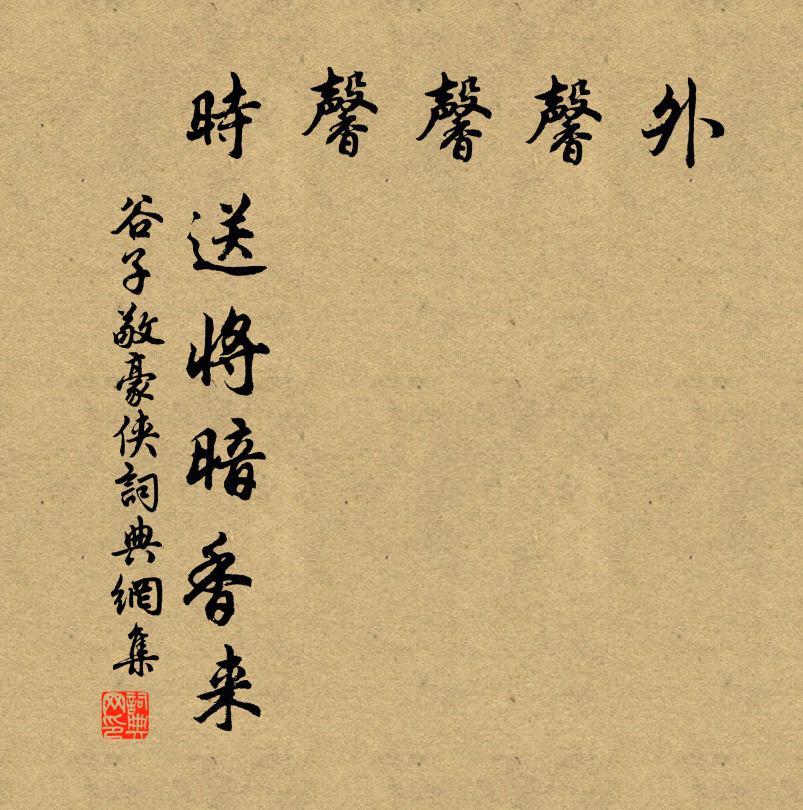 外
馨
馨
馨
時送將暗香来
谷子敬豪俠詞典網集
詞典
网印